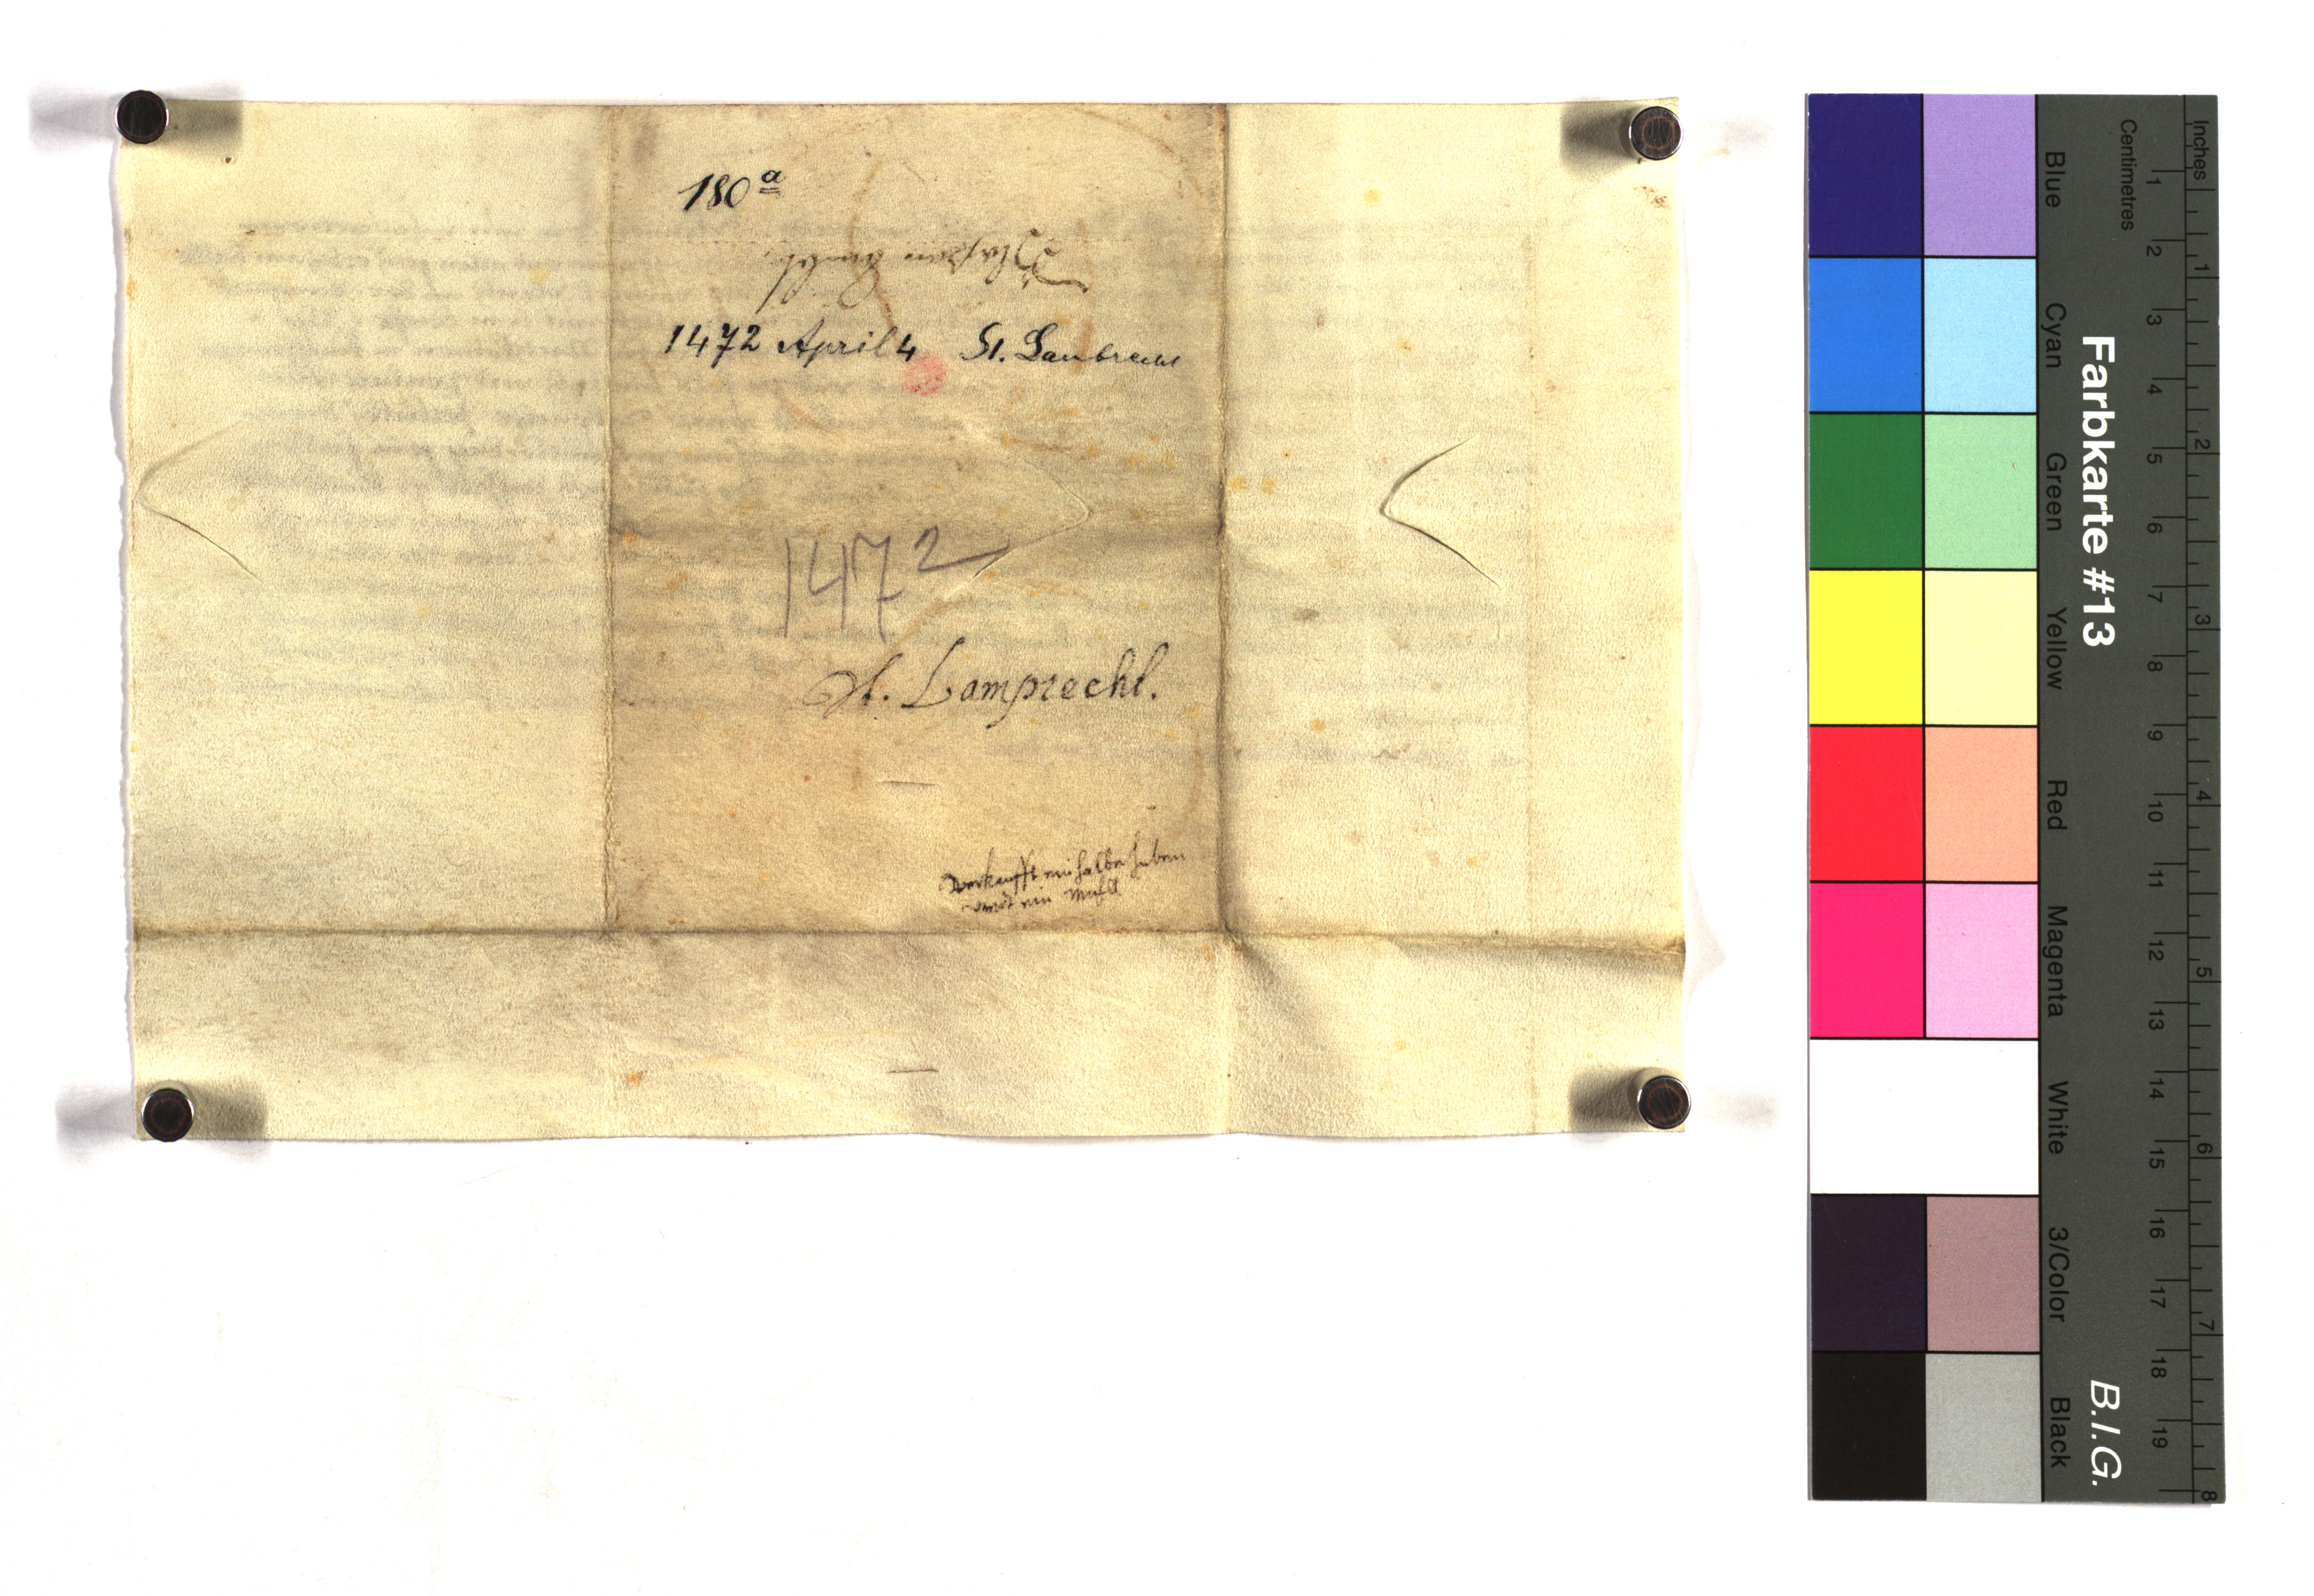 180 a
1472 April 4 St. Lambrecht
1472
St. Lamprecht.
verkaufft ein halbe huben
vnd ein Mühl
Inches
Centimetres
Blue
Cyan
Green
Yellow
Red
Magenta
White
3/Color
Black
Farbkarte #13
B.I.G.
1 2 3 4 5 6 7 8 9 10 11 12 13 14 15 16 17 18 19
1 2 3 4 5 6 7 8